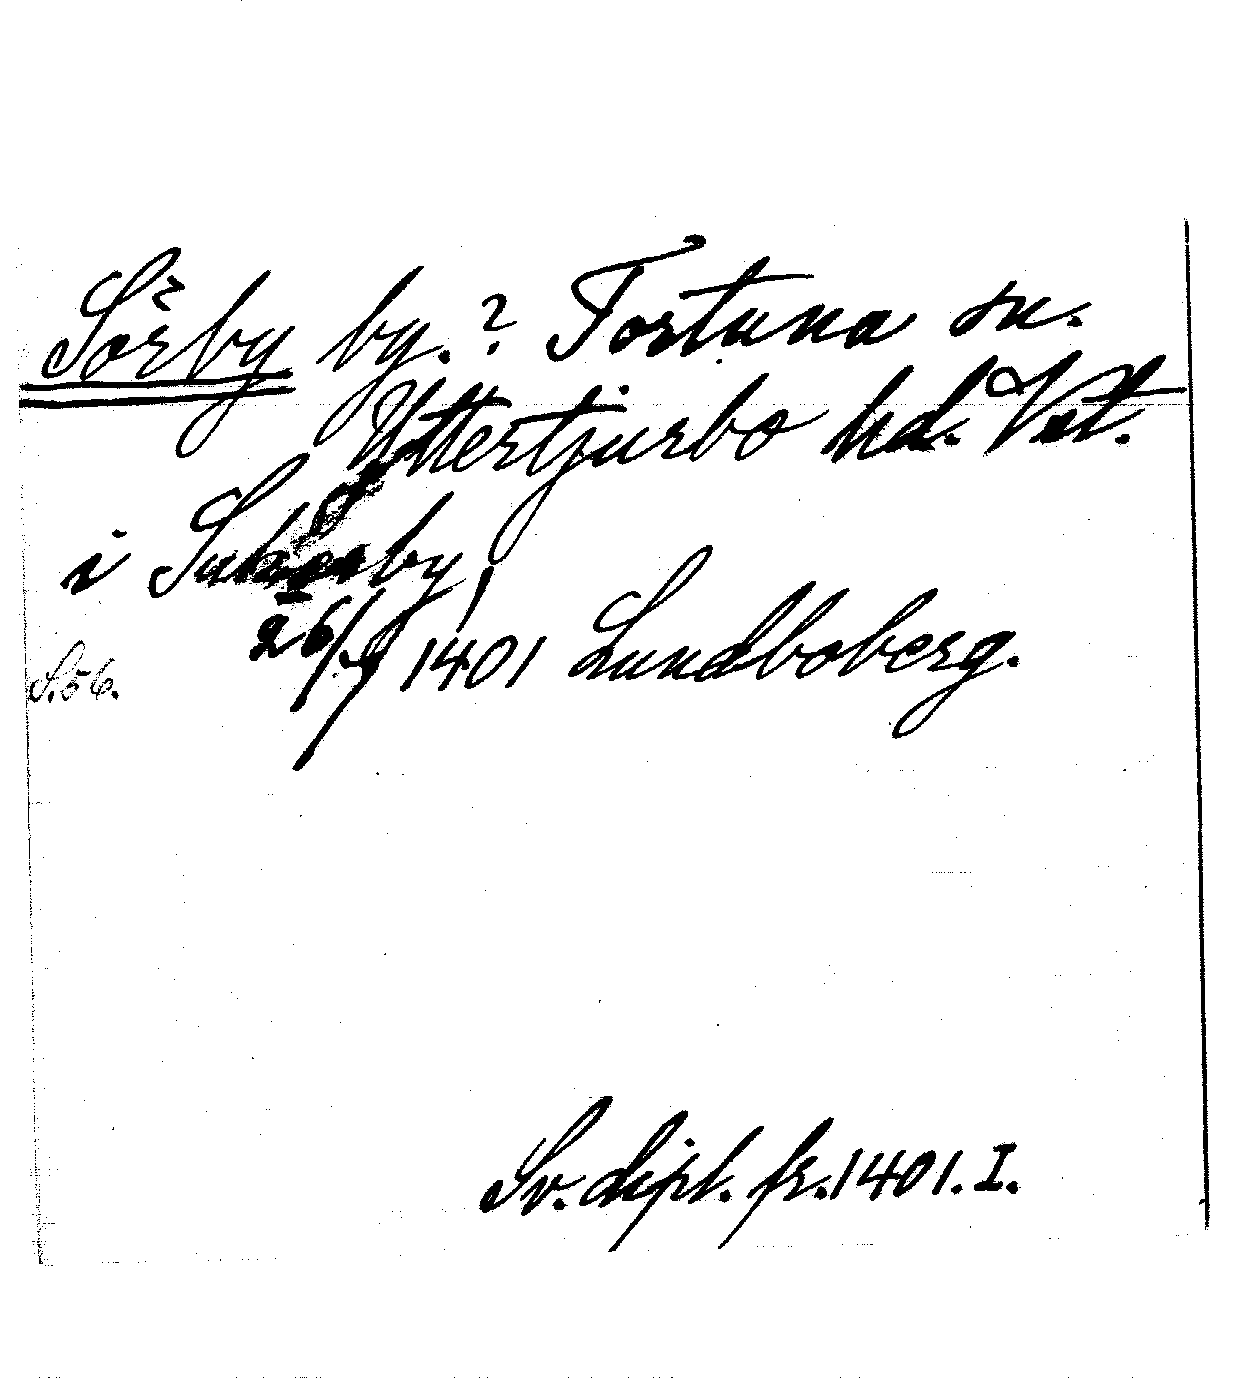 Sörby by.? Fortuna sn.
Yttertjurbo hd. Vstl.
i
26/9 1401 Lundboberg.
S. 56.
Sv. dipl. fr. 1401. I.